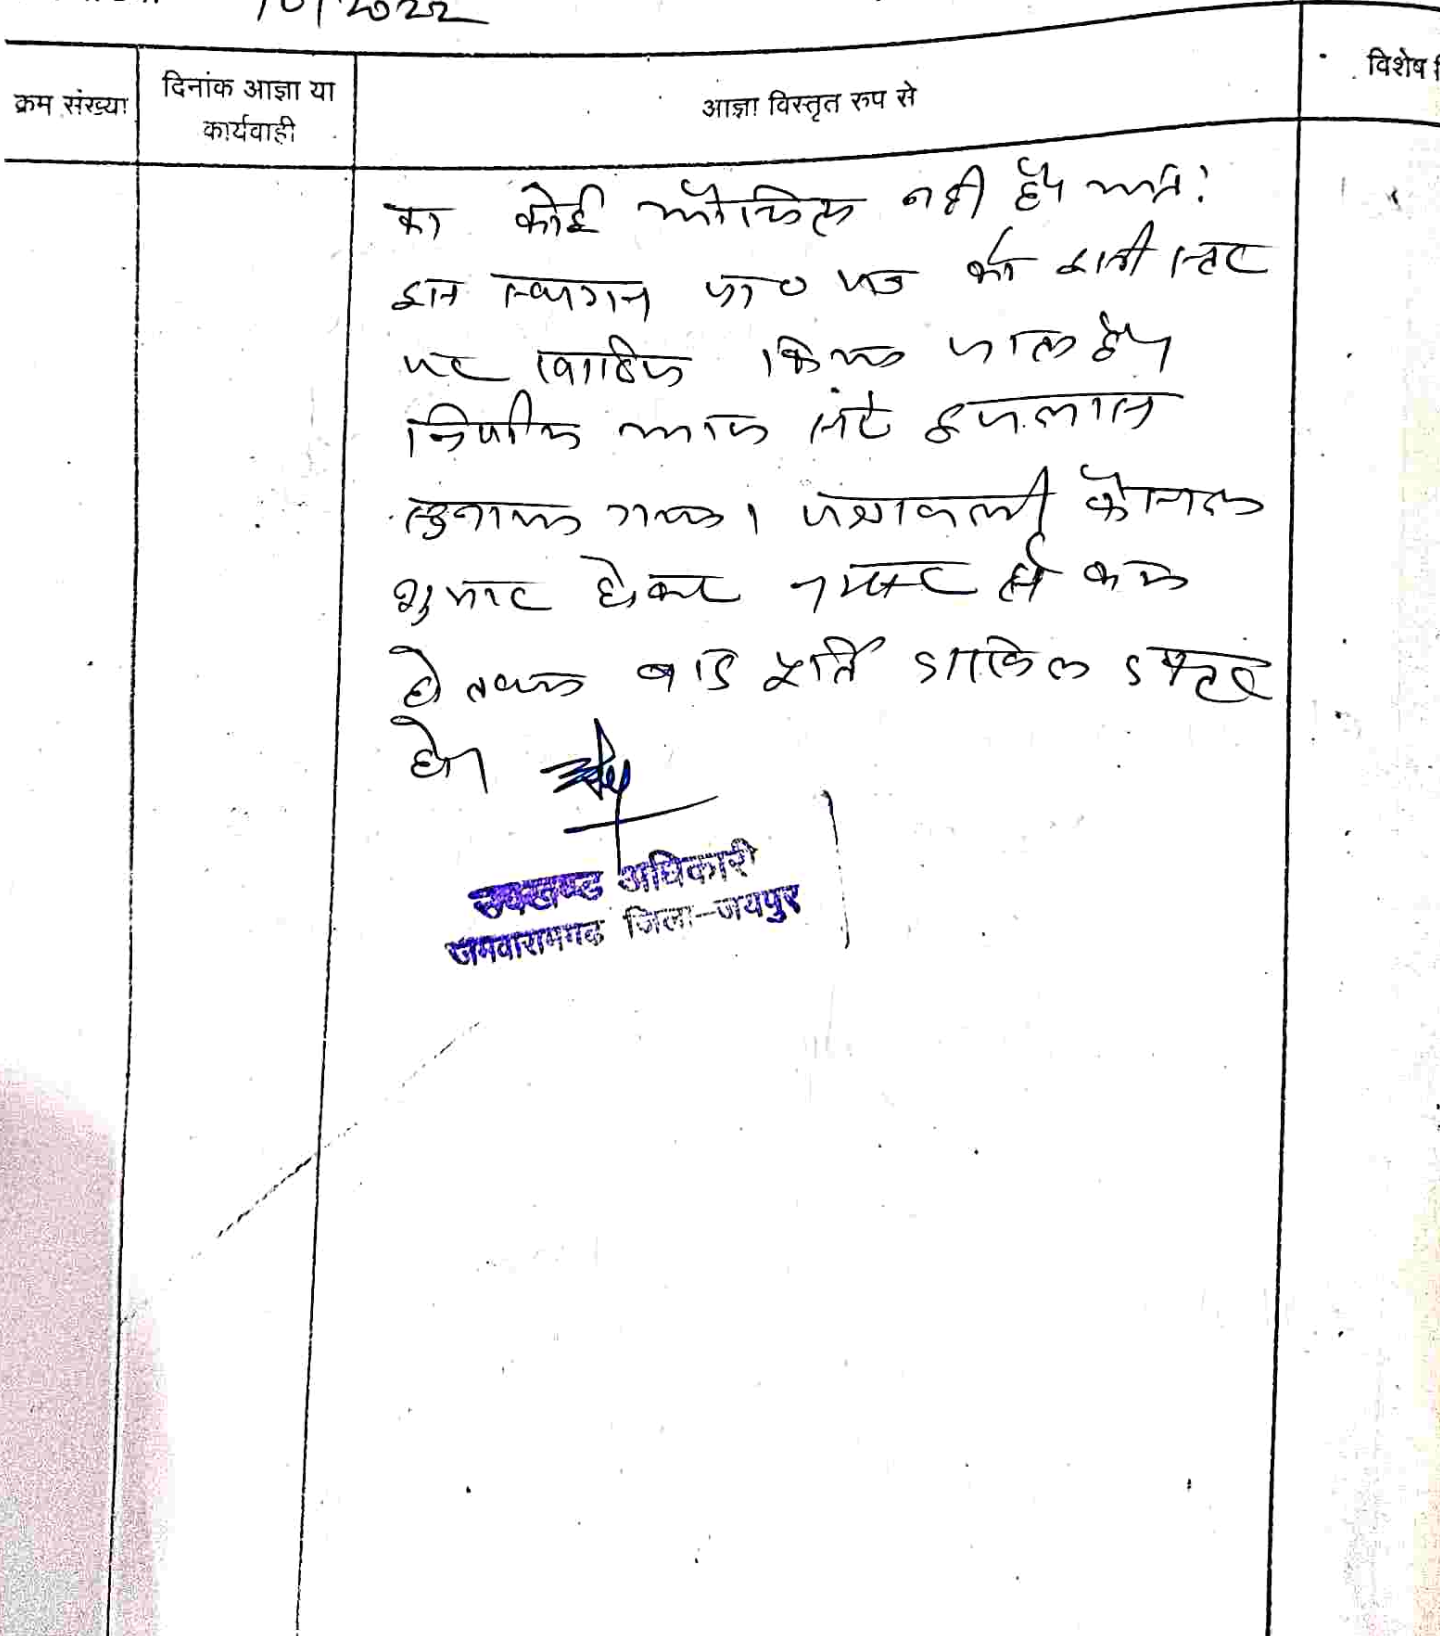 /2022
क्रम संख्या
दिनांक आज्ञा या
कार्यवाही
आज्ञा विस्तृत रुप से
विशेष
का कोई औचित्य नही है। अतः
इस स्थगन प्रा० पत्र को इसी स्टेज
पर खारिज किया जाता है।
निर्णय आज सरे इजलास
सुनाया गया। पत्रावली फैसल
शुमार होकर नम्बर से कम
हो तथा बाद पूर्ति दाखिल दफ्तर
हो।
उपखण्ड अधिकारी
जमवारामगढ जिला-जयपुर